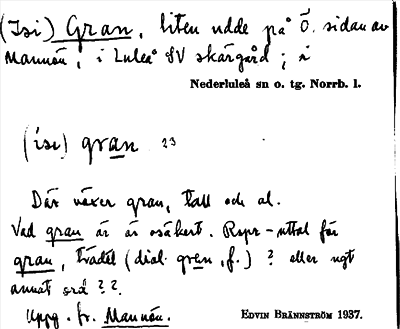 (Isi) Gran, liten udde på Ö. sidan av
Mannön, i Luleå SV skärgård; i
Nederluleå sn o. tg. Norrb. l.
(isi) gran 23
Där växer gran, tall och al.
Vad gran är är osäkert. Rspr-uttal för
gran, trädet (dial. gren, f.) ? eller ngt
annat ord ??.
Uppg. fr. Mannön.
EDVIN BRÄNNSTRÖM 1937.